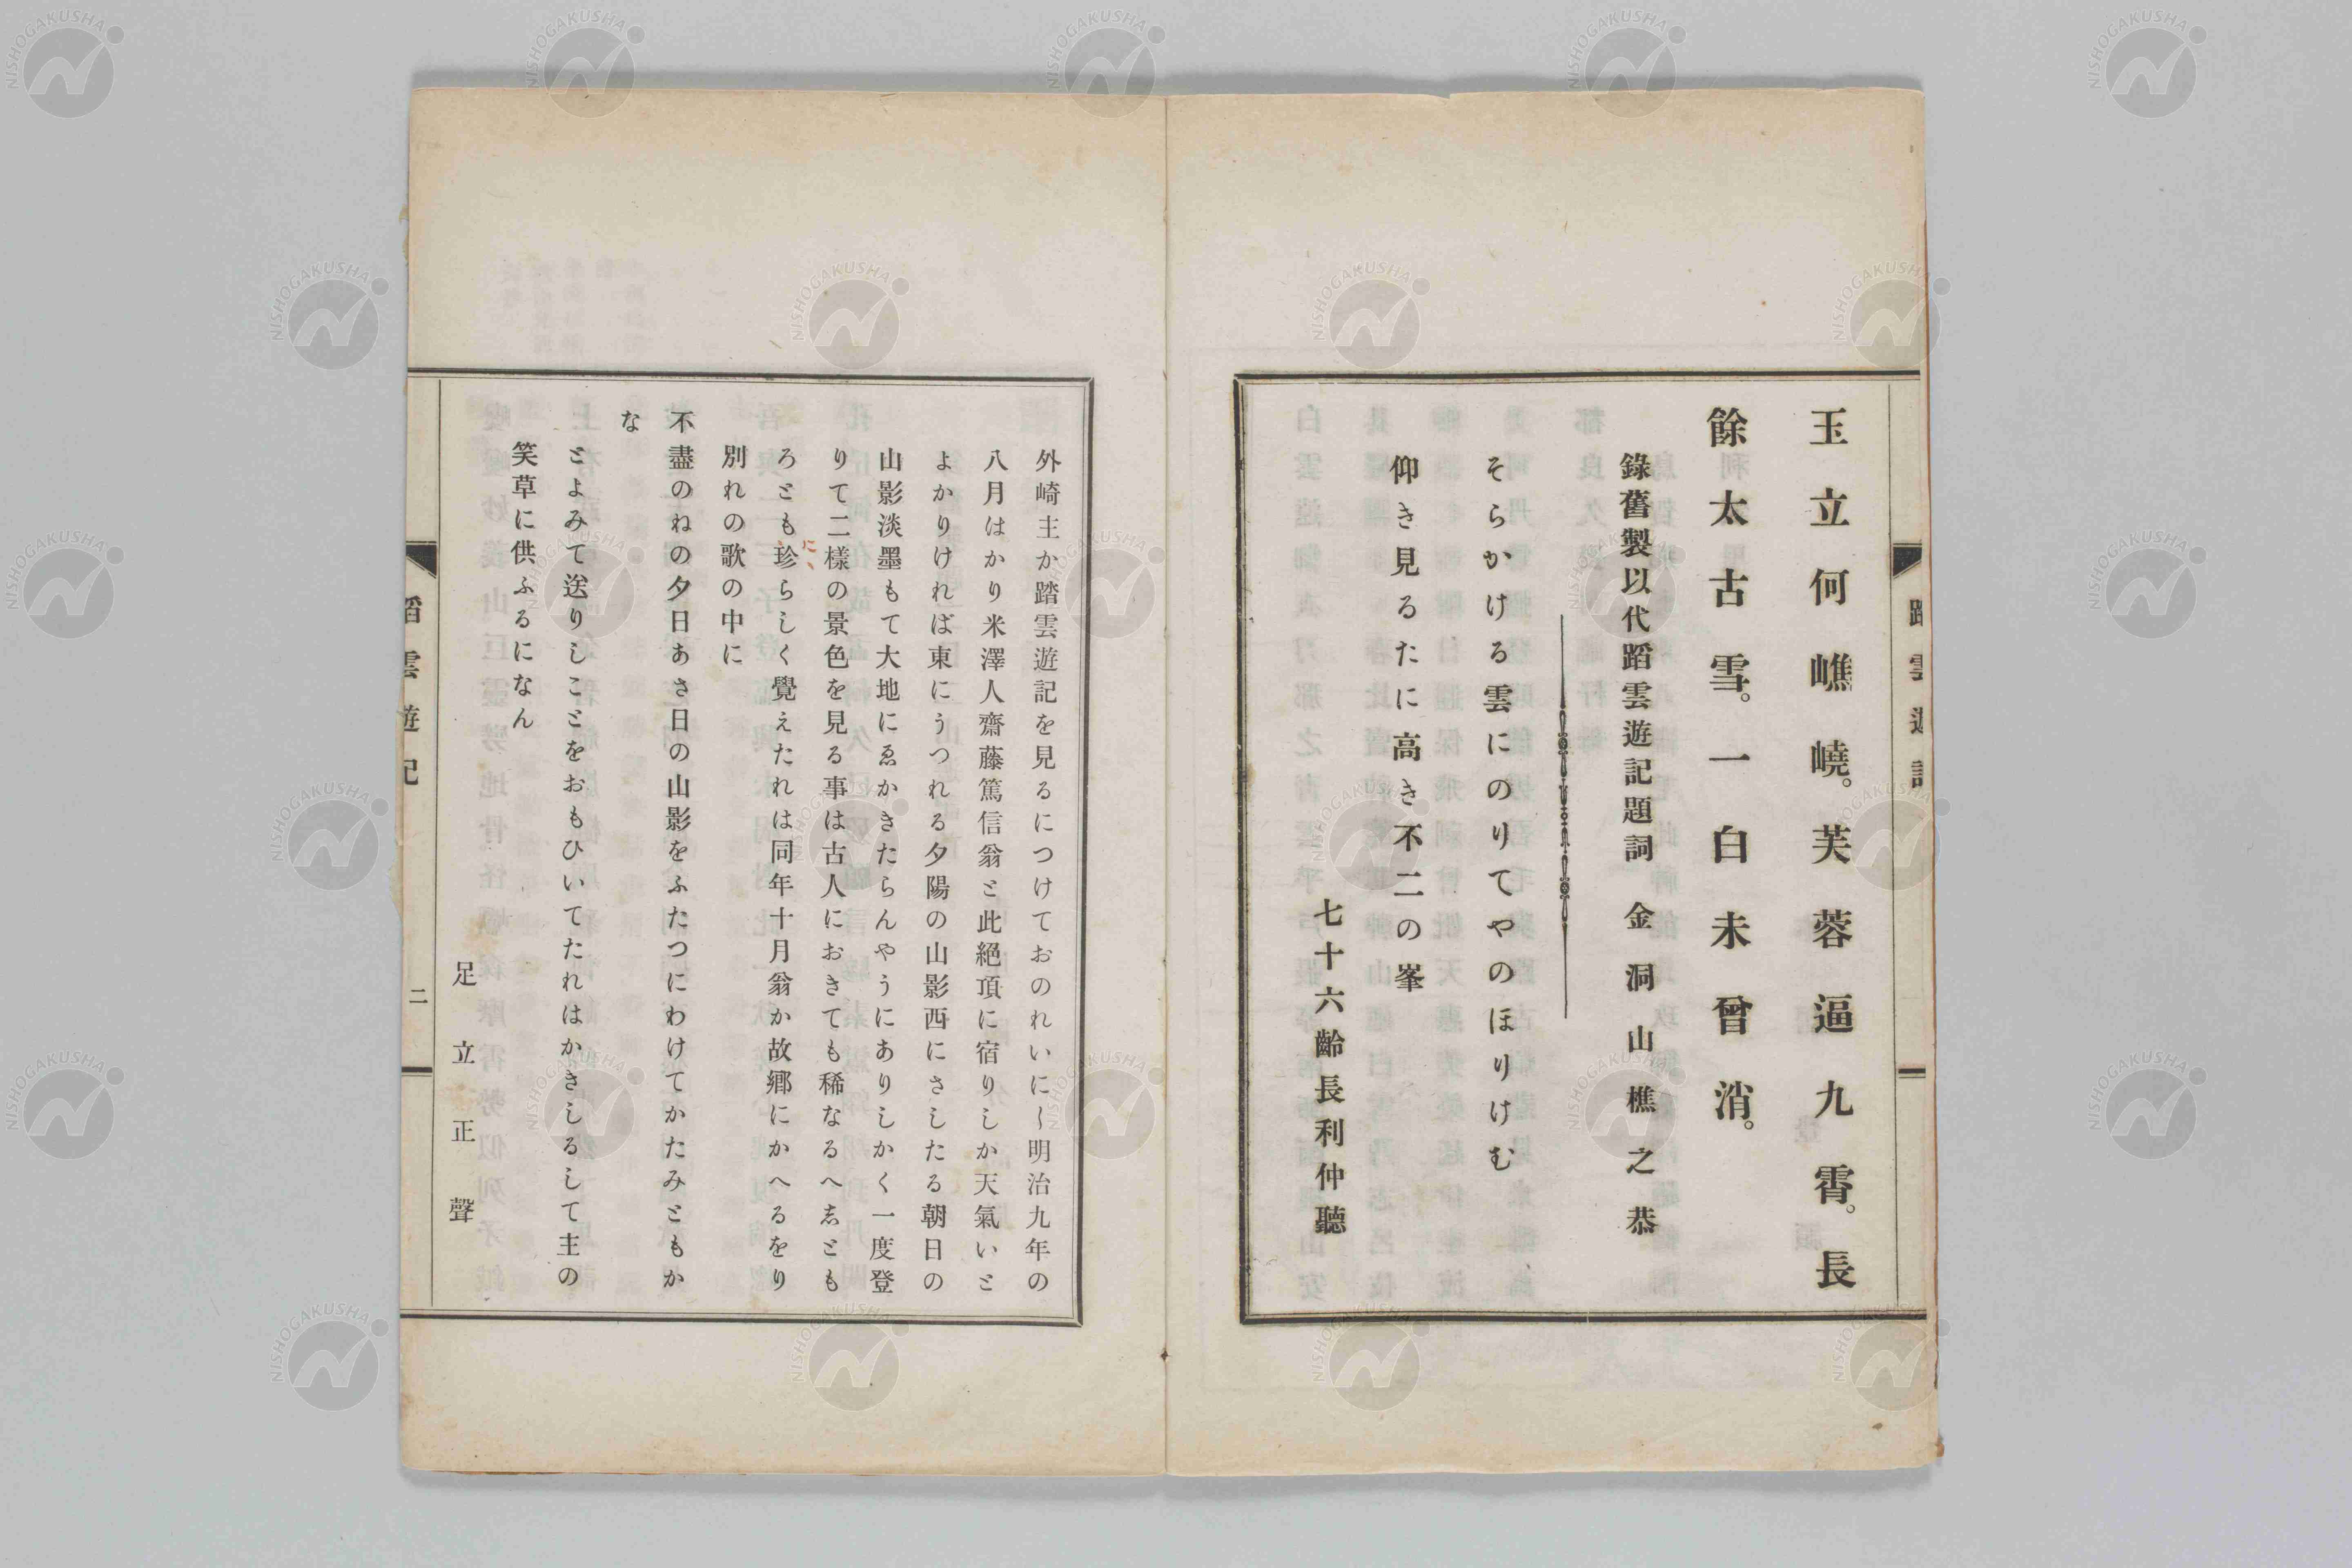 玉立何嶕嶢。芙蓉逼九霄。長
餘太古雪。一白未曾消。
錄舊製以代蹈雲遊記題詞 金洞山樵之恭
そらかける雲にのりてやのほりけむ
仰き見るたに高き不二の峯
七十六齡長利仲聽
外崎主か踏雲遊記を見るにつけておのれいに〳明治九年の
八月はかり米澤人齋藤篤信翁と此絕頂に宿りしか天氣いと
よかりけれは東にうつれる夕陽の山影西にさしたる朝日の
山影淡墨もて大地にゑかきたらんやうにありしかく一度登
りて二樣の景色を見る事は古人におきても稀なるへ志とも
ろとも珍らしく覺えたれは同年十月翁か故鄕にかへるをり
に、
別れの歌の中に
不盡のねの夕日あさ日の山影をふたつにわけてかたみともか
な
とよみて送りしことをおもひいてたれはかきしるして主の
笑草に供ふるになん
足立正聲
蹈雲遊記
二
NISHOGAKUSHA